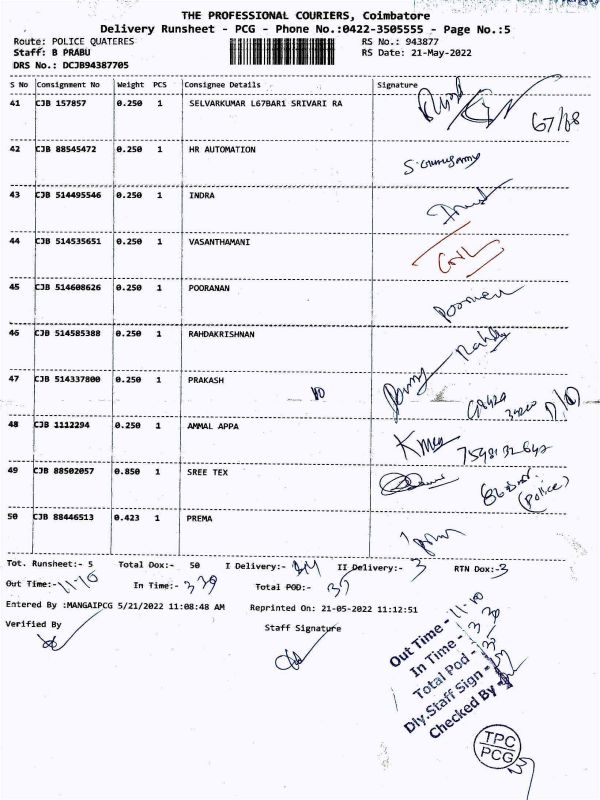 THE PROFESSIONAL COURIERS, Coimbatore
Delivery Runsheet - PCG - Phone No.:0422-3505555 - Page No.:5
Route: POLICE QUATERES RS No.: 943877
Staff: B PRABU RS Date: 21-May-2022
DRS No.: DCJB94387705
S No Consignment No Weight PCS Consignee Details Signature
41 CJB 157857 0.250 1 SELVARKUMAR L67BAR1 SRIVARI RA 67/68
42 CJB 88545472 0.250 1 HR AUTOMATION
43 CJB 514495546 0.250 1 INDRA
44 CJB 514535651 0.250 1 VASANTHAMANI
45 CJB 514608626 0.250 1 POORANAN
46 CJB 514585388 0.250 1 RAHDAKRISHNAN
47 CJB 514337800 0.250 1 PRAKASH
48 CJB 1112294 0.250 1 AMMAL APPA
49 CJB 88502057 0.850 1 SREE TEX (Police)
50 CJB 88446513 0.423 1 PREMA
Tot. Runsheet:- 5 Total Dox:- 50 I Delivery:- II Delivery:- 3 RTN Dox:-3
Out Time:-11-10 In Time:- 3 30 Total POD:- 35
Entered By :MANGAIPCG 5/21/2022 11:08:48 AM Reprinted On: 21-05-2022 11:12:51
Verified By Staff Signature
Out Time - 11-10
In Time - 3 30
Total Pod - 35
Dly.Staff Sign -
Checked By -
TPC
PCG